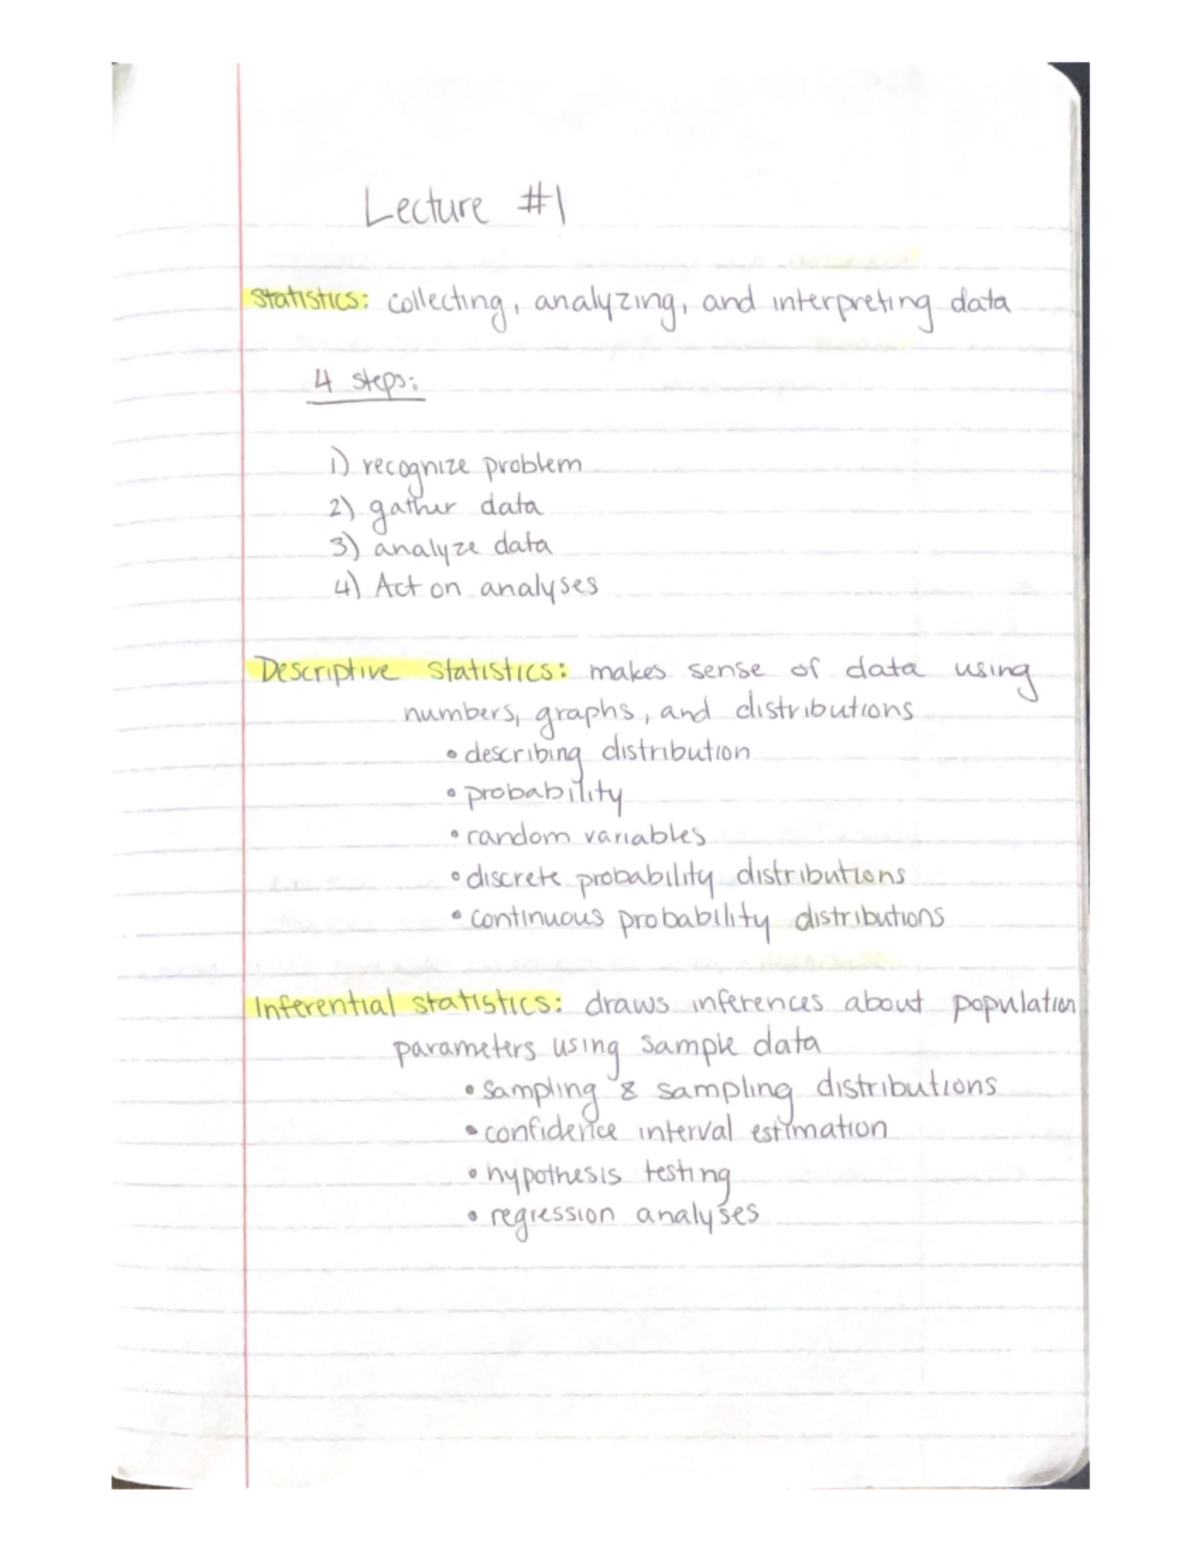 Lecture #1
Statistics: collecting, analyzing, and interpreting data
4 steps:
1) recognize problem
2) gather data
3) analyze data
4) Act on analyses
Descriptive statistics: makes sense of data using
numbers, graphs, and distributions
• describing distribution
• probability
• random variables
• discrete probability distributions
• continuous probability distributions
Inferential statistics: draws inferences about population
parameters using sample data
• sampling & sampling distributions
• confidence interval estimation
• hypothesis testing
• regression analyses